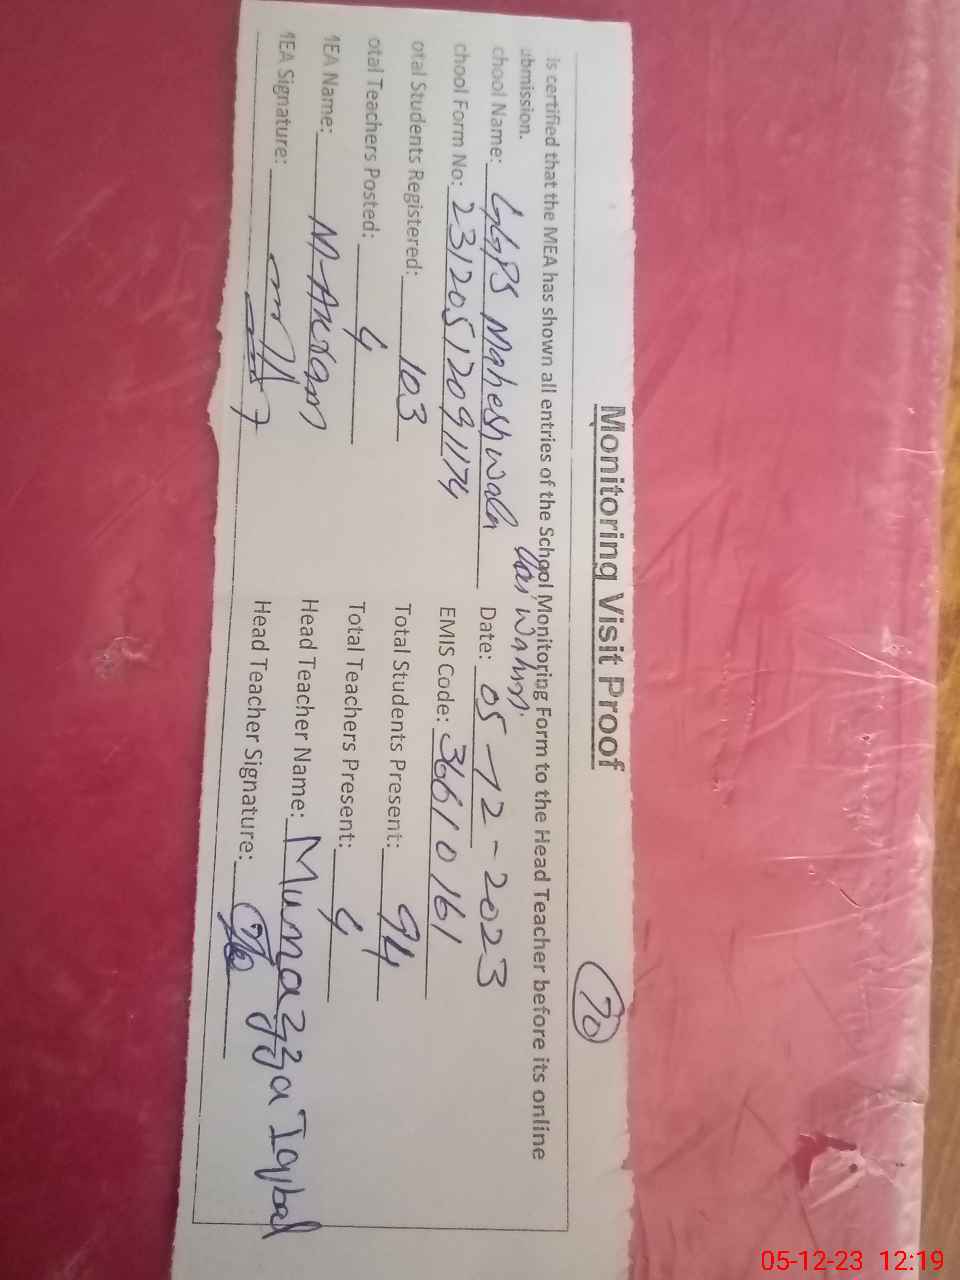 Monitoring Visit Proof
70
is certified that the MEA has shown all entries of the School Monitoring Form to the Head Teacher before its online
ubmission.
chool Name: GGPS Maheshwala Date: 05-12-2023
chool Form No: 231205120911174 EMIS Code: 36610161
otal Students Registered: 103 Total Students Present: 94
otal Teachers Posted: 4 Total Teachers Present: 4
MEA Name: M-Akram Head Teacher Name: Munazza Iqbal
MEA Signature: Head Teacher Signature:
05-12-23 12:19